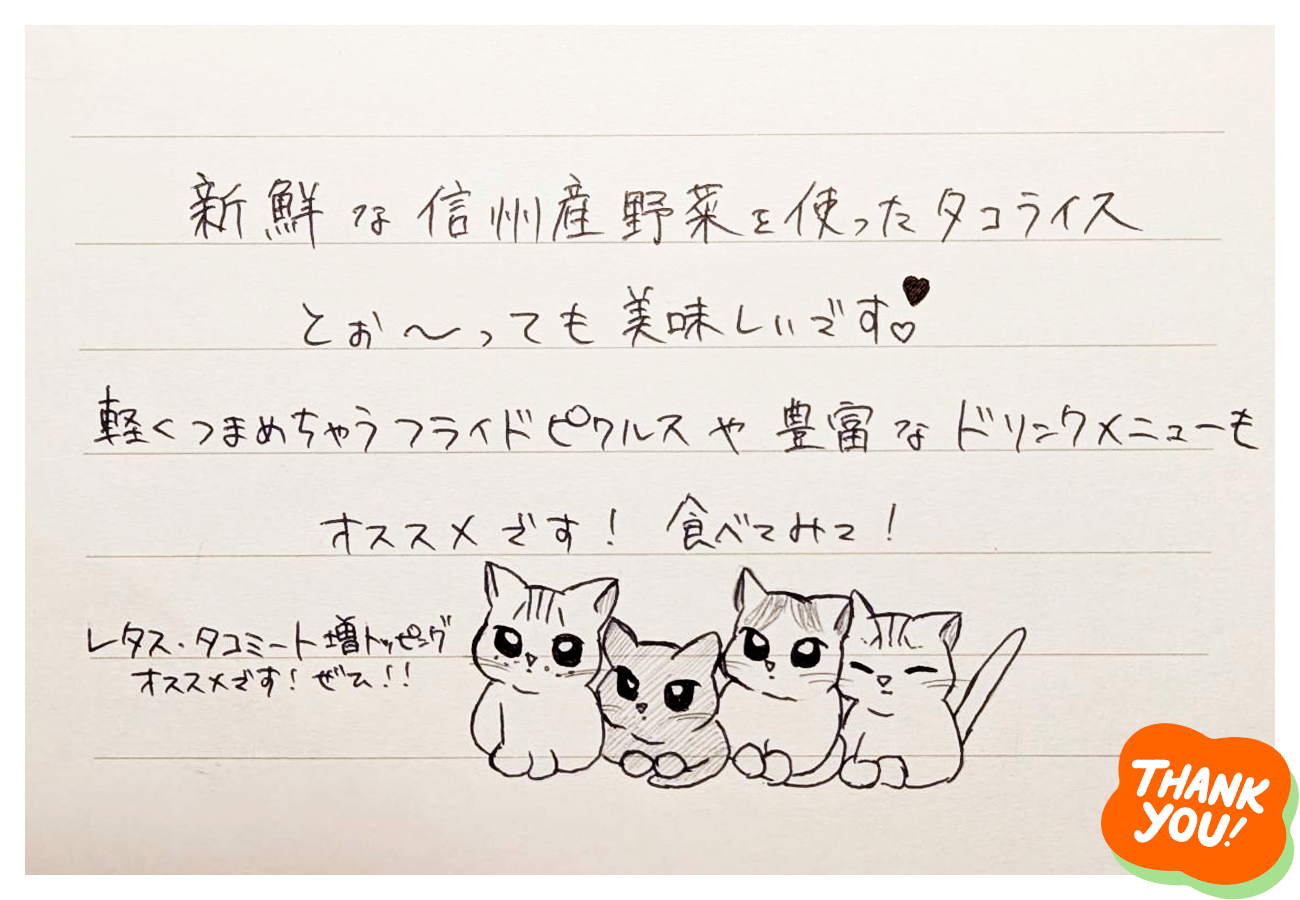 新鮮な信州産野菜を使ったタコライス
とぉ〜っても美味しいです♡♥
軽くつまめちゃうフライドピクルスや豊富なドリンクメニューも
オススメです！ 食べてみて！
レタス・タコミート増トッピング
オススメです！ぜひ！！
THANK
YOU!